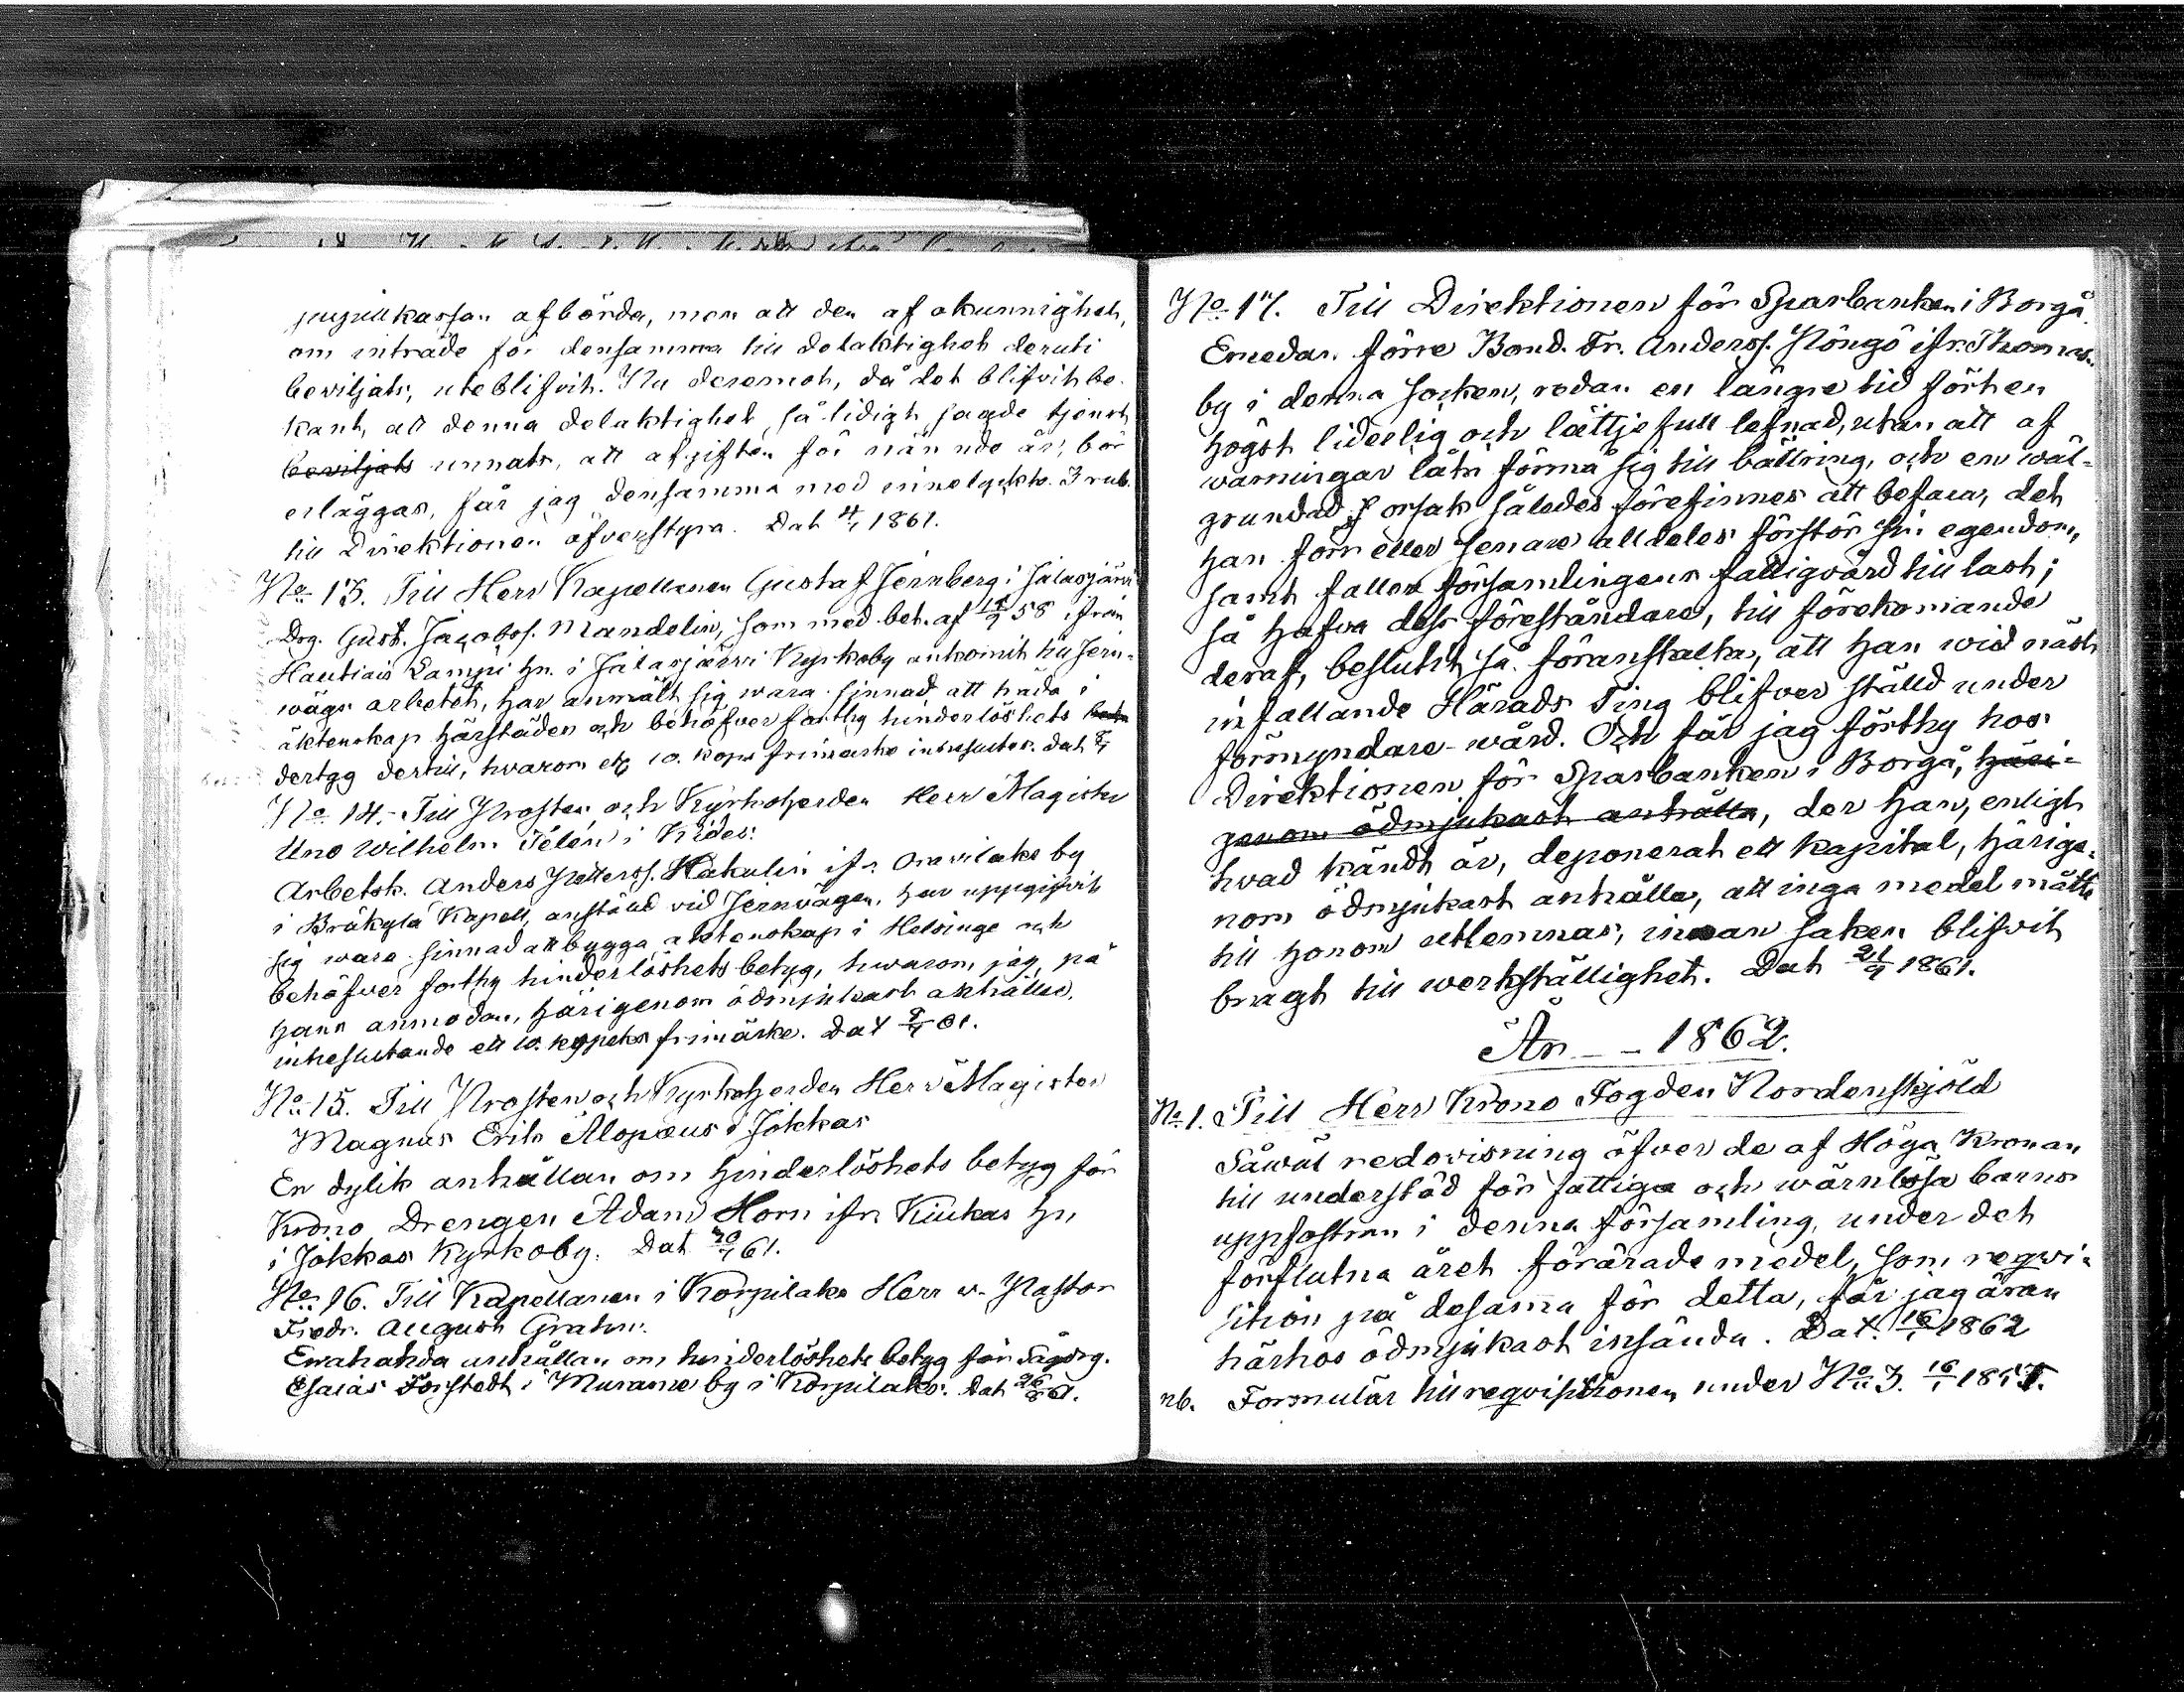 pupillkassan afbörda, men att den af okunnighet,
om inträde för densamma till delaktighet deruti
beviljats, uteblifvit. Nu deremot, då det blifvit be-
kant, att denna delaktighet, så lidigt sagde tjenst,
beviljats unnats, att afgiften för nämnde år, bör
erläggas, får jag densamma med innelyckte 3 rub.
till Direktionen öfverstyra. Dat 4/1 1861.
No 13. Till Herr Kapellanen Gustaf Jernberg i Jalasjärvi
Drg. Gust. Jacobss. Mandelin, som med bet. af 58 ifrån
Hautiais Lampi hn. i Jalasjärvi Kyrkoby ankomit till Jern-
wägs arbetet, har anmält sig wara sinnad att träda i
äktenskap härstädes och behöfver forthy hinderlöshets
betyg dertill, hvarom ett 10. kop. frimärke inneslutes. Dat
No 14. Till Prosten och Kyrkoherden Herr Magister
Uno Wilhelm Télen i Kides.
Arbetsk. Anders Petterss. Hakulin ifr. Onnilaks by
i Bräkylä Kapell, anstäld vid Jernvägen, har uppgifvit
sig wara sinnad att bygga äktenskap i Helsinge och
behöfver forthy hinderlöshets betyg, hwarom jag, på
hans anmodan, härigenom ödmjukast anhåller,
inneslutande ett 10. kopeks frimärke. Dat 61.
No 15. Till Prosten och Kyrkoherden Herr Magister
Magnus Erik Alopæus i Jokkas
En dylik anhållan om hinderlöshets betyg för
Krono Drengen Adam Horn ifrn Kiukas hn
i Jokkas Kyrkoby. Dat 61.
No 16. Till Kapellanen i Korpilaks Herr v. Pastor
Fredr. August Grahn.
Enahanda anhållan om hinderlöshets betyg för Sågdrg.
Esaias Forstedt i Murame by i Korpilaks. Dat 61.
No 17. Till Direktionen för Sparbanken i Borgå
Emedan förre Bond. Fr. Anderss. Röngö ifr. Thomas-
by i denna socken, redan en längre tid fört en
högst liderlig och lättjefull lefnad, utan att af
warningar låta förmå sig till bättring, och en wäl-
grundad orsak således förefinnes att befara, det
han förr eller senare alldeles förstör sin egendom,
samt faller församlingens fattigvård till last;
så hafva dess föreståndare, till förekommande
deraf, beslutit så föranstalta, att han wid näst
infallande Härads Ting blifver ställd under
förmyndare-wård. Och får jag förthy hos
Direktionen för Sparbanken i Borgå, häri-
genom ödmjukast anhålla, der han, enligt
hvad kändt är, deponerat ett kapital, härige-
nom ödmjukast anhålla, att inga medel måtte
till honom utlemnas, innan saken blifvit
bragt till werkställighet. Dat 21/9 1861.
År -- 1862.
No 1. Till Herr Krono Fogden Nordenskjöld
Såwäl redovisning öfver de af Höga Kronan
till understöd för fattiga och wärnlösa barns
uppfostran i denna församling, under det
förflutna året förärade medel, som reqvi-
sition på desamma för detta, får jag äran
härhos ödmjukast insända. Dat. 16/1 1862
nb. Formulär till reqvisitionen under No 3. 16/1 1857.